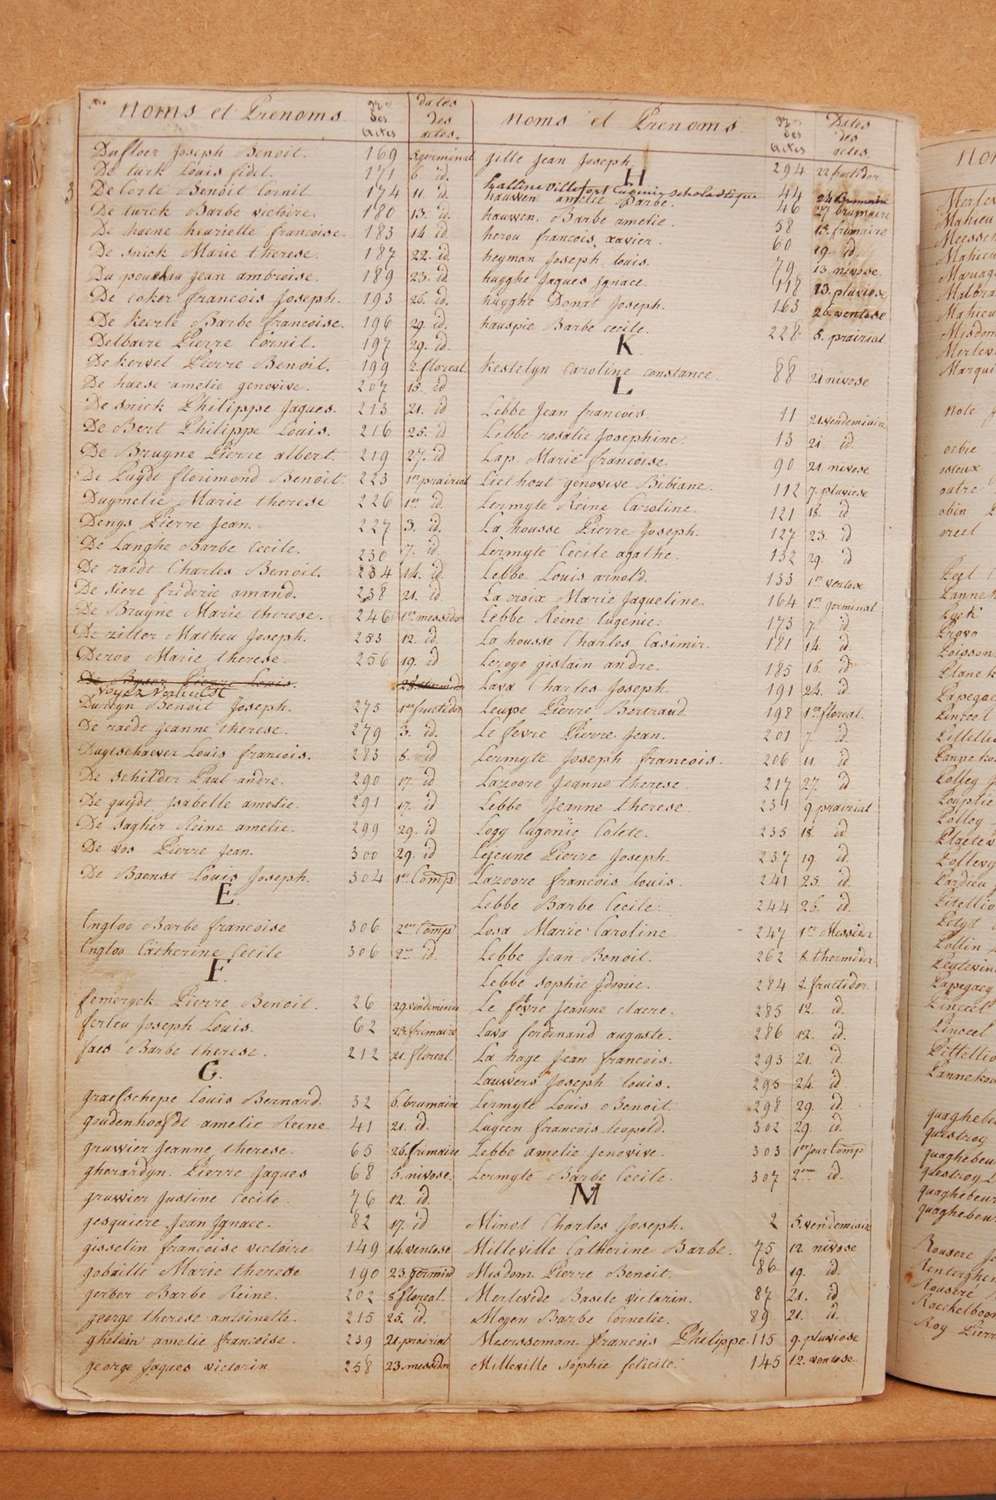 Noms et Prenoms. Nos des actes dates des actes.
Dufloer Joseph Benoit. 169 5 germinal
De turk Louis fidel. 171 6. id.
De Corte Benoit Cornil. 174 11 id.
De turck Barbe victoire. 180 13. id.
De haene henriette francoise. 183 14 id.
De snick Marie therese. 187 22. id.
Du jean ambroise. 189 23. id
De coker francois Joseph. 193 26. id.
De keerle Barbe francoise. 196 29. id.
Delbaere Pierre Cornil. 197 29. id.
De kervel Pierre Benoit. 199 2. floreal
De haese amelie genovive. 207 15. id
De snick Philippe Jaques. 213 21. id
De Bert Philippe Louis. 216 25. id
De Bruyne Pierre albert. 219 27. id
De Luyde florimond Benoit. 223 1er prairial
Duymelie Marie therese 226 1er id.
Denys Pierre Jean. 227 3. id.
De Langhe Barbe Cecile. 230 7. id.
De raedt Charles Benoit. 234 14. id.
De siere frideric amand. 238 21. id
De Bruyne Marie therese. 246 1er messidor
De zitter Mathieu Joseph. 253 12. id
Deroo Marie therese. 256 19. id
De Pierre Louis. 28 thermidor
Voyez
Benoit Joseph. 275 1er fructidor
De raedt jeanne therese. 279 3. id.
Duytschaever Louis francois. 283 6. id
De schilder Paul andre. 290 17. id
De guydt Isabelle amelie. 291 17. id
De Jagher Reine amelie. 299 29. id
De vos Pierre Jean. 300 29. id
De Baenst Louis Joseph. 304 1er Comp
E.
Engloo Barbe francoise 306 2me Comp
Engloo Catherine Cecile 306 2me id.
F.
femeryck Pierre Benoit. 26 29. vendemiaire
ferleu Joseph Louis. 62 23. frimaire
faes Barbe therese. 212 21. floreal.
G.
graefschepe Louis Bernard. 32 6. brumaire
grudenhoofdt amelie Reine 41 21. id.
gruwier Jeanne therese. 65 26. frimaire
gherardyn. Pierre Jaques 68 5. nivose.
gruwier Justine Cecile. 76 12. id.
gesquiere Jean Ignace. 82 17. id
gisselin francoise victoire 149 14. ventose
gobaille Marie therese 190 23. germinal
gerber Barbe Reine. 202 5. floreal.
george therese antoinette. 215 25. id.
ghelein amelie francoise. 239 21. prairial
george Jaques victorin 258 23. messidor
Noms et Prenoms. Nos des actes Dates des actes.
gille jean Joseph. 294 22 fructidor
H
hallinc Eugenie scholastique 44 24 brumaire
hauwen amelie Barbe. 46 27 brumaire
hauwen. Barbe amelie. 58 15. frimaire
herou francois xavier. 60 19. id.
heyman Joseph louis. 79 13. nivose.
huyghe Jaques Ignace. 118 13. pluviose
huyghe Donat Joseph. 163 26. ventose
hauspie Barbe cecile. 228 5. prairial
K
Kestelyn Caroline constance. 88 21 nivose
L
Lebbe Jean francois. 11 21. vendemiaire
Lebbe rosalie Josephine. 13 21 id.
Lap Marie francoise. 90 21. nivose
Liethout genovive Bibiane. 112 7. pluviose
Lermyte Reine Caroline. 121 18. id
La housse Pierre Joseph. 127 23. id.
Lermyte Cecile agathe. 132 29. id
Lebbe Louis arnold. 133 1er ventose
La croix Marie Jaqueline. 164 1er germinal.
Lebbe Reine Eugenie. 173 7. id
La housse Charles Casimir. 181 14. id
Leroye gislain andre. 185 16. id
Lava Charles Joseph. 191 24. id.
Leupe Pierre Bertrand 198 1er floreal.
Le fevre Pierre Jean. 201 7 id.
Lermyte Joseph francois. 206 11 id
Lazoore Jeanne therese 217 27. id
Lebbe Jeanne therese. 231 9 prairial
Logy Eugenie Colete. 235 18. id
Lejeune Pierre Joseph. 237 19. id.
Lazoore francois louis. 241 23. id.
Lebbe Barbe Cecile. 244 26. id.
Losa Marie Caroline 247 1er Messidor
Lebbe Jean Benoit. 262 8 thermidor
Lebbe sophie Idonie. 284 2. fructidor
Le fevre Jeanne claere. 285 12. id.
Lava ferdinand auguste. 286 12. id.
La haye Jean francois. 293 21. id.
Lauwers Joseph louis. 295 24. id.
Lermyte Louis Benoit. 298 29. id
Lugien francois leopold. 302 29. id.
Lebbe amelie Jenovive. 303 1er jour Comp
Lermyte Barbe Cecile. 307 2eme id.
M
Minot Charles Joseph. 2 5. vendemiaire
Milleville Catherine Barbe. 75 12 nivose
Misdom Pierre Benoit. 86 19. id.
Merlevede Basile victorin. 87 21. id.
Moyen Barbe Cornelie. 89 21. id.
Meersseman francois Philippe. 115 9. pluviose
Milleville sophie felicité. 145 12. ventose.